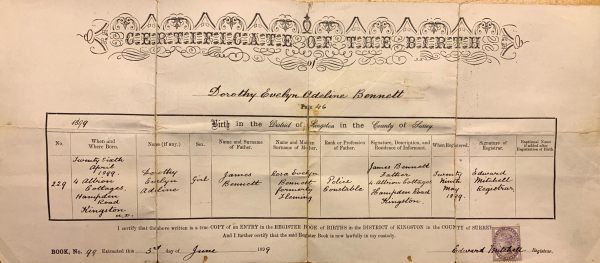 CERTIFICATE OF THE BIRTH
of
Dorothy Evelyn Adeline Bennett
Page 46
1899
Birth in the District of Kingston in the County of Surrey
No.
When and Where Born.
Name (if any).
Sex.
Name and Surname of Father.
Name and Maiden Surname of Mother.
Rank or Profession of Father.
Signature, Description, and Residence of Informant.
When Registered.
Signature of Registrar.
Baptismal Name if added after Registration of Birth
229
Twenty Sixth
April
1899
4 Albion
Cottages
Hampden
Road
Kingston
Dorothy
Evelyn
Adeline
Girl
James
Bennett
Evelyn
Bennett
formerly
Fleming
Police
Constable
James Bennett
Father
4 Albion Cottages
Hampden Road
Kingston
Twenty
Ninth
May
1899
Edward
Mitchell
Registrar
I certify that the above written is a true COPY of an ENTRY in the REGISTER BOOK of BIRTHS in the DISTRICT OF KINGSTON IN THE COUNTY OF SURREY
And I further certify that the said Register Book is now lawfully in my custody.
BOOK, No. 99 Extracted this 3rd day of June 1899
Edward Mitchell Registrar.